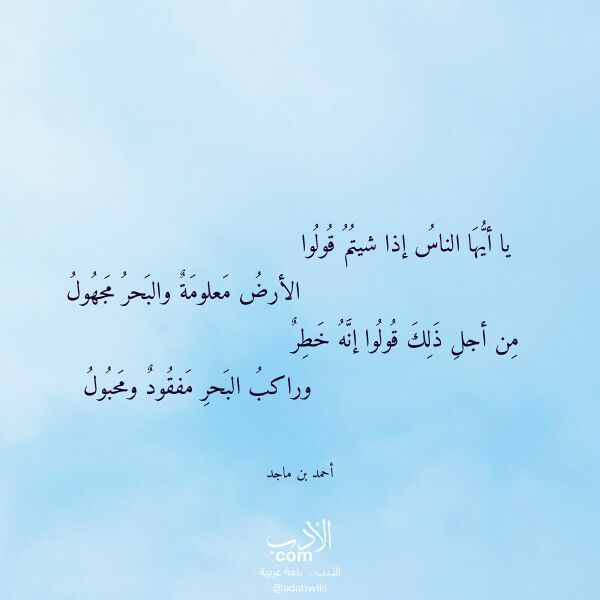 يا أَيُّهَا الناسُ إذا شيتُمُ قُولُوا
الأرضُ مَعلومَةٌ والبَحرُ مَجهُولُ
مِن أجلِ ذَلِكَ قُولُوا إنَّهُ خَطِرٌ
وراكبُ البَحرِ مَفقُودٌ ومَحبُولُ
أحمد بن ماجد
الأدب
com
الأدب .. بلغة عربية
@adabwiki